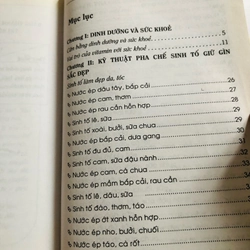 Mục lục
Chương I: DINH DƯỠNG VÀ SỨC KHOẺ
Cân bằng dinh dưỡng và sức khoẻ 5
Vai trò của vitamin với sức khoẻ 11
Chương II: KỸ THUẬT PHA CHẾ SINH TỐ GIỮ GÌN
SẮC ĐẸP
Sinh tố làm đẹp da, tóc
Nước ép dâu tây, bắp cải 26
Nước ép cam, thơm 27
Nước ép rau cần hỗn hợp 28
Sinh tố lê, sữa 29
Sinh tố xoài, bưởi, sữa chua 30
Sinh tố cam, bắp cải, dưa gang 31
Sinh tố đu đủ, cam 32
Sinh tố cam, sữa đậu nành
Nước ép cam, cà chua
Nước ép mầm bắp cải, rau cần
Sinh tố lê, dâu, sữa
Sinh tố đào, thơm, táo
Nước ép ớt xanh hỗn hợp
Nước ép nho, bưởi, chuối
Nước ép táo, cà rốt